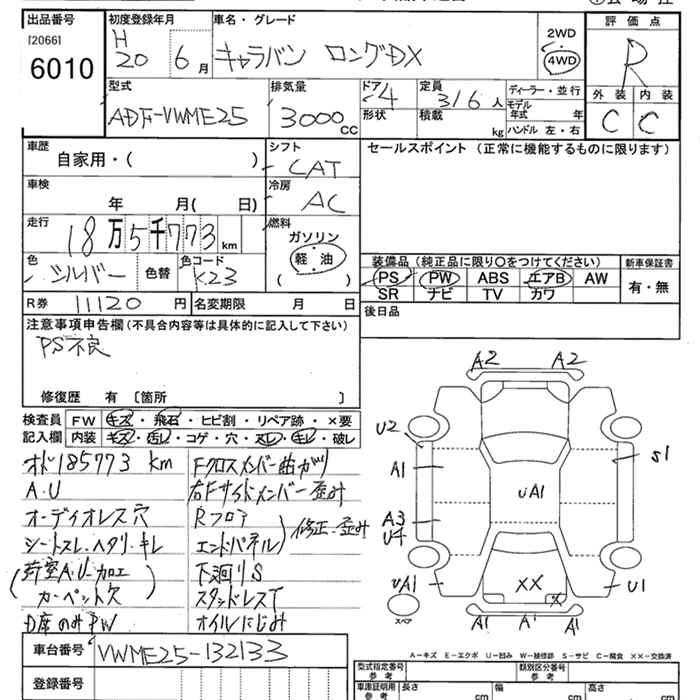 出品番号
[2066]
6010
初度登録年月
H
20 6月
車名・グレード
キャラバン ロングDX
2WD
4WD
評価点
R
外装 内装
C C
型式
ADF-VWME25
排気量
3000CC
ドア
4
形状
定員
3/6人
積載
kg
ディーラー・並行
モデル年式 年
ハンドル 左・右
車歴
自家用・( )
シフト
CAT
冷房
AC
車検
年 月( 日)
走行
18万5千773km
燃料
ガソリン
軽・油
( )
色
シルバー
色替
色コード
K23
R券 11120円
名変期限 月 日
セールスポイント(正常に機能するものに限ります)
装備品(純正品に限り〇をつけてください)
PS PW ABS エアB AW
SR ナビ TV カワ
新車保証書
有・無
後日品
注意事項申告欄(不具合内容等は具体的に記入して下さい)
PS不良
修復歴 有 〔箇所 〕
検査員記入欄
FW キズ・飛石・ヒビ割・リペア跡・×要
内装 キズ・汚レ・コゲ・穴・スレ・キレ・破レ
オド185773 km
A.U
オーディオレス穴
シートスレ.ヘタリ.キレ
(荷室A.U-カロエ
カーペット欠)
D席のみPW
Fクロスメンバー曲ガリ
右Fサイドメンバー歪み
Rフロア
エンドパネル)修正.歪み
下廻りS
スタンドレス欠
オイルにじみ
車台番号 VWME25-132133
登録番号
A2 A2
U2
A1
S1
UA1
A3
U4
UA1
XX
X
U1
A1 A1 A1
スペア
A-キズ E-エクボ U-凹み W-補修跡 S-サビ C-腐食 ××-交換済
型式指定番号
参考
類別区分番号
参考
車庫証明用
参考
長さ
cm
幅
cm
高さ
cm